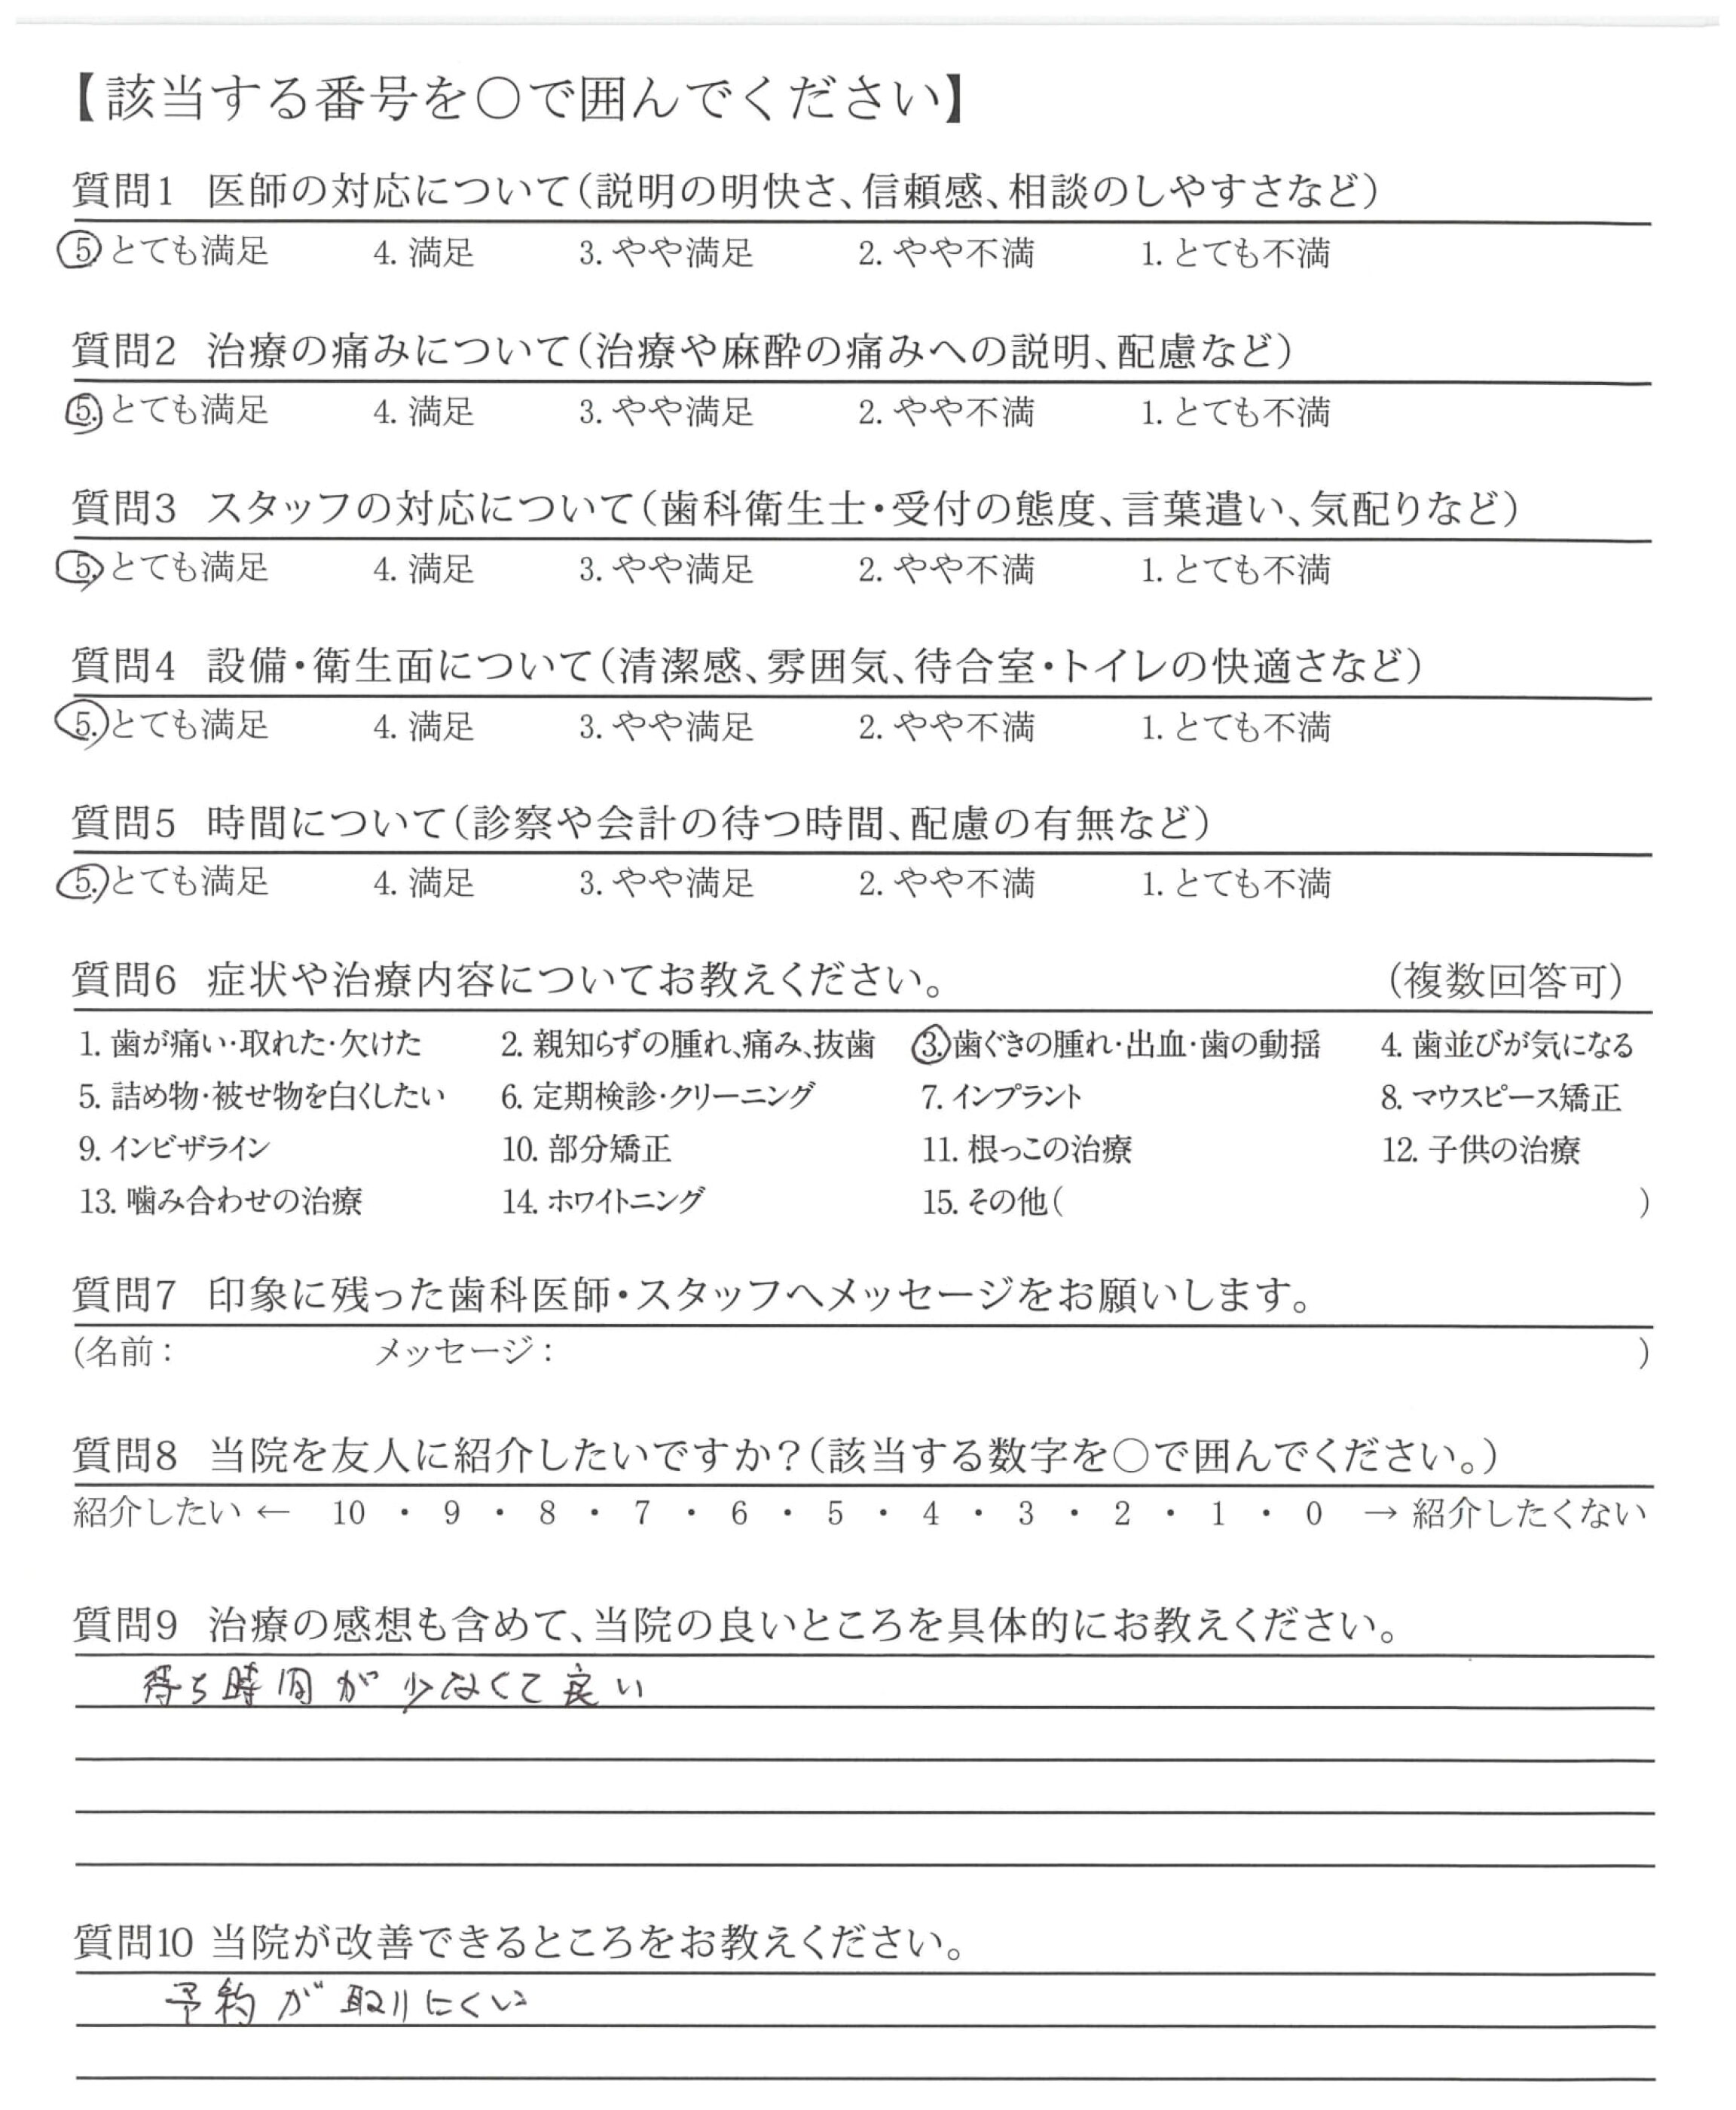 【該当する番号を○で囲んでください】
質問1 医師の対応について(説明の明快さ、信頼感、相談のしやすさなど)
5. とても満足 4. 満足 3. やや満足 2. やや不満 1. とても不満
質問2 治療の痛みについて(治療や麻酔の痛みへの説明、配慮など)
5. とても満足 4. 満足 3. やや満足 2. やや不満 1. とても不満
質問3 スタッフの対応について(歯科衛生士・受付の態度、言葉遣い、気配りなど)
5. とても満足 4. 満足 3. やや満足 2. やや不満 1. とても不満
質問4 設備・衛生面について(清潔感、雰囲気、待合室・トイレの快適さなど)
5. とても満足 4. 満足 3. やや満足 2. やや不満 1. とても不満
質問5 時間について(診察や会計の待つ時間、配慮の有無など)
5. とても満足 4. 満足 3. やや満足 2. やや不満 1. とても不満
質問6 症状や治療内容についてお教えください。 (複数回答可)
1. 歯が痛い・取れた・欠けた 2. 親知らずの腫れ、痛み、抜歯 3. 歯ぐきの腫れ・出血・歯の動揺 4. 歯並びが気になる
5. 詰め物・被せ物を白くしたい 6. 定期検診・クリーニング 7. インプラント 8. マウスピース矯正
9. インビザライン 10. 部分矯正 11. 根っこの治療 12. 子供の治療
13. 噛み合わせの治療 14. ホワイトニング 15. その他( )
質問7 印象に残った歯科医師・スタッフへメッセージをお願いします。
(名前: メッセージ: )
質問8 当院を友人に紹介したいですか?(該当する数字を○で囲んでください。)
紹介したい ← 10 ・ 9 ・ 8 ・ 7 ・ 6 ・ 5 ・ 4 ・ 3 ・ 2 ・ 1 ・ 0 → 紹介したくない
質問9 治療の感想も含めて、当院の良いところを具体的にお教えください。
待ち時間が少なくて良い
質問10 当院が改善できるところをお教えください。
予約が取りにくい